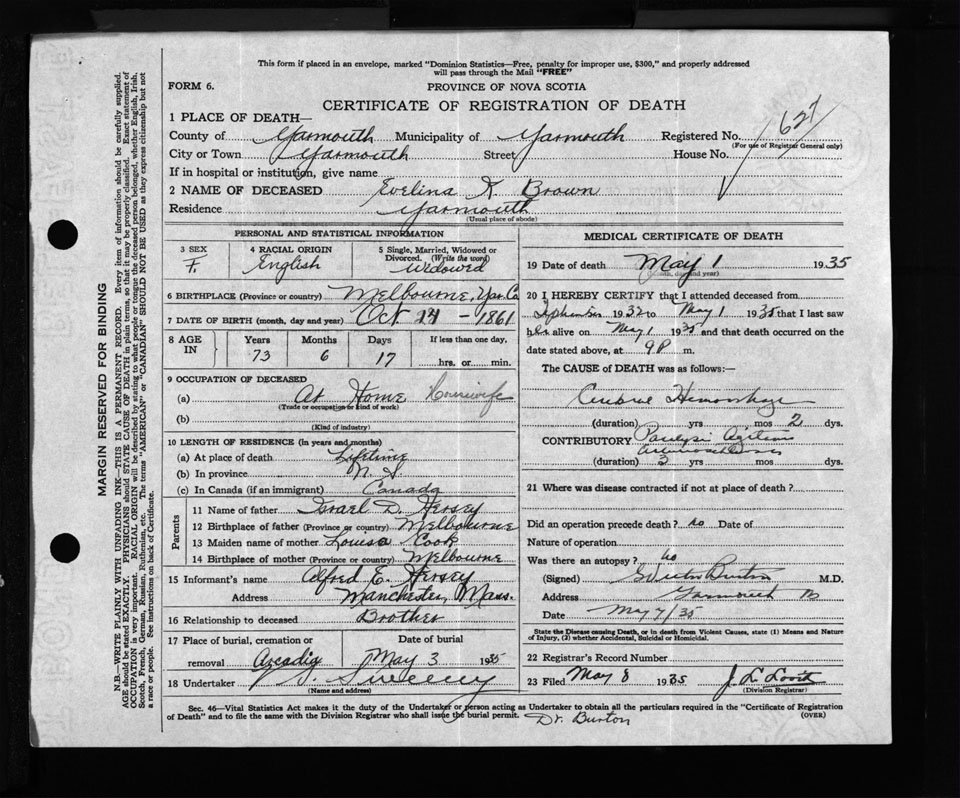 This form if placed in an envelope, marked "Dominion Statistics—Free, penalty for improper use, $300," and properly addressed
will pass through the Mail "FREE"
FORM 6.
PROVINCE OF NOVA SCOTIA
CERTIFICATE OF REGISTRATION OF DEATH
1 PLACE OF DEATH—
County of Yarmouth Municipality of Yarmouth Registered No. 627
(For use of Registrar General only)
City or Town Yarmouth Street House No.
If in hospital or institution, give name
2 NAME OF DECEASED Evelina K Brown
Residence Yarmouth
(Usual place of abode)
PERSONAL AND STATISTICAL INFORMATION
3 SEX F. 4 RACIAL ORIGIN English 5 Single, Married, Widowed or Divorced. (Write the word) Widowed
6 BIRTHPLACE (Province or country) Melbourne, Yar. Co
7 DATE OF BIRTH (month, day and year) Oct 24 - 1861
8 AGE IN Years 73 Months 6 Days 17 If less than one day, hrs. or min.
9 OCCUPATION OF DECEASED
(a) At Home Housewife
(Trade or occupation or kind of work)
(b)
(Kind of industry)
10 LENGTH OF RESIDENCE (in years and months)
(a) At place of death Lifetime
(b) In province N S
(c) In Canada (if an immigrant) Canada
Parents
11 Name of father Israel D. Hersey
12 Birthplace of father (Province or country) Melbourne
13 Maiden name of mother Louisa Cook
14 Birthplace of mother (Province or country) Melbourne
15 Informant's name Alfred E. Hersey
Address Manchester, Mass.
16 Relationship to deceased Brother
17 Place of burial, cremation or removal Arcadia Date of burial May 3 1935
18 Undertaker Sweeny
(Name and address)
MEDICAL CERTIFICATE OF DEATH
19 Date of death May 1 1935
(Month, day and year)
20 I HEREBY CERTIFY that I attended deceased from
September 1932 to May 1 1935 that I last saw
her alive on May 1 1935 and that death occurred on the
date stated above, at 9 P m.
The CAUSE OF DEATH was as follows:—
Hemorrhage
(duration) yrs mos 2 dys.
CONTRIBUTORY Paralysis Agitans
(duration) 3 yrs mos dys.
21 Where was disease contracted if not at place of death?
Did an operation precede death? no Date of
Nature of operation
Was there an autopsy? no
(Signed) Burton M.D.
Address Yarmouth
Date May 7/35
State the Disease causing Death, or in death from Violent Causes, state (1) Means and Nature
of Injury, (2) whether Accidental, Suicidal or Homicidal.
22 Registrar's Record Number
23 Filed May 8 1935 J. L. Lovitt
(Division Registrar)
Sec. 46—Vital Statistics Act makes it the duty of the Undertaker or person acting as Undertaker to obtain all the particulars required in the "Certificate of Registration
of Death" and to file the same with the Division Registrar who shall issue the burial permit. (OVER)
Dr. Burton
MARGIN RESERVED FOR BINDING
N.B.—WRITE PLAINLY WITH UNFADING INK—THIS IS A PERMANENT RECORD. Every item of information should be carefully supplied.
AGE should be stated EXACTLY. PHYSICIANS should STATE CAUSE OF DEATH in plain terms, so that it may be properly classified. Exact statement of
OCCUPATION is very important. RACIAL ORIGIN will be described by stating to what people or tongue the deceased person belonged, whether English, Irish,
Scotch, French, German, Russian, Ruthenian, etc. The terms "AMERICAN" or "CANADIAN" SHOULD NOT BE USED as they express citizenship but not
a race or people. See instructions on back of Certificate.